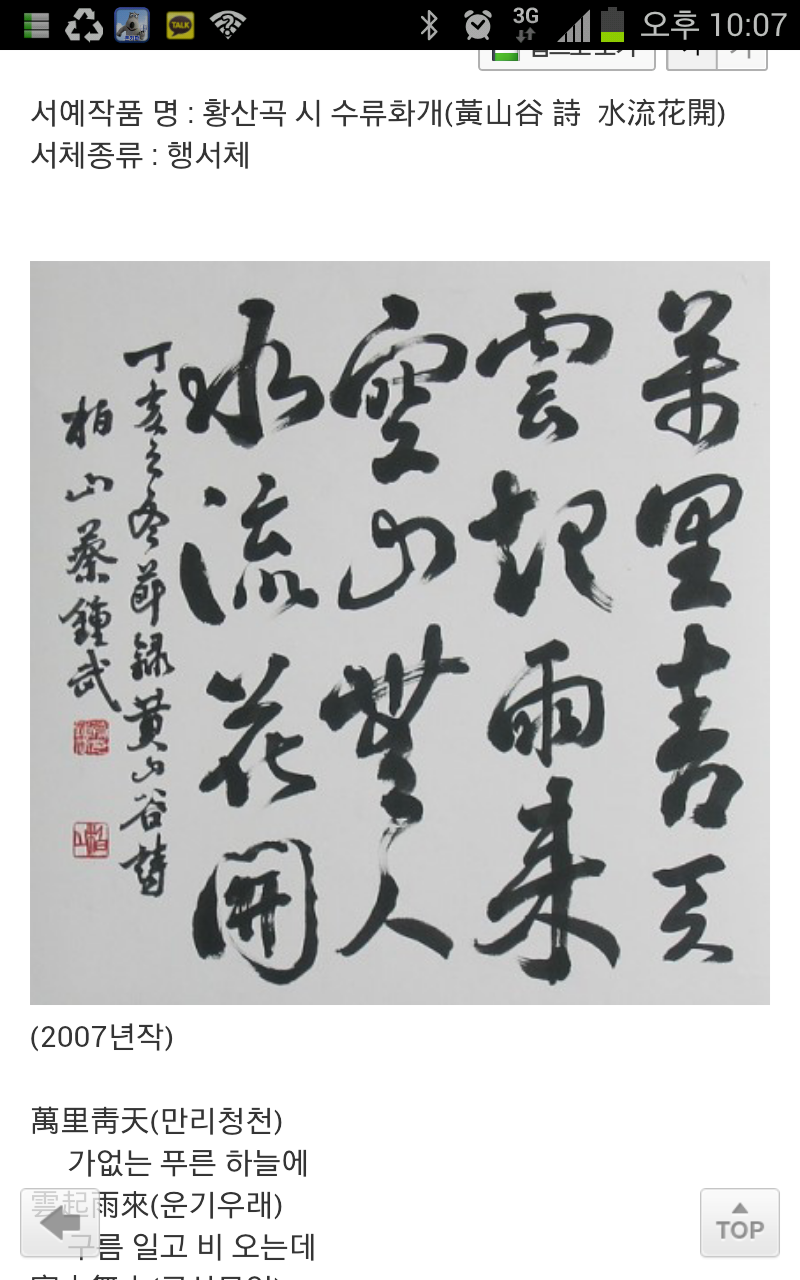 TALK
3G
오후 10:07
서예작품 명 : 황산곡 시 수류화개(黃山谷 詩  水流花開)
서체종류 : 행서체
萬里靑天
雲起雨来
空山無人
水流花開
丁亥之冬節録黃山谷詩
柏山蔡鍾武
(2007년작)
萬里靑天(만리청천)
가없는 푸른 하늘에
雲起雨來(운기우래)
구름 일고 비 오는데
TOP